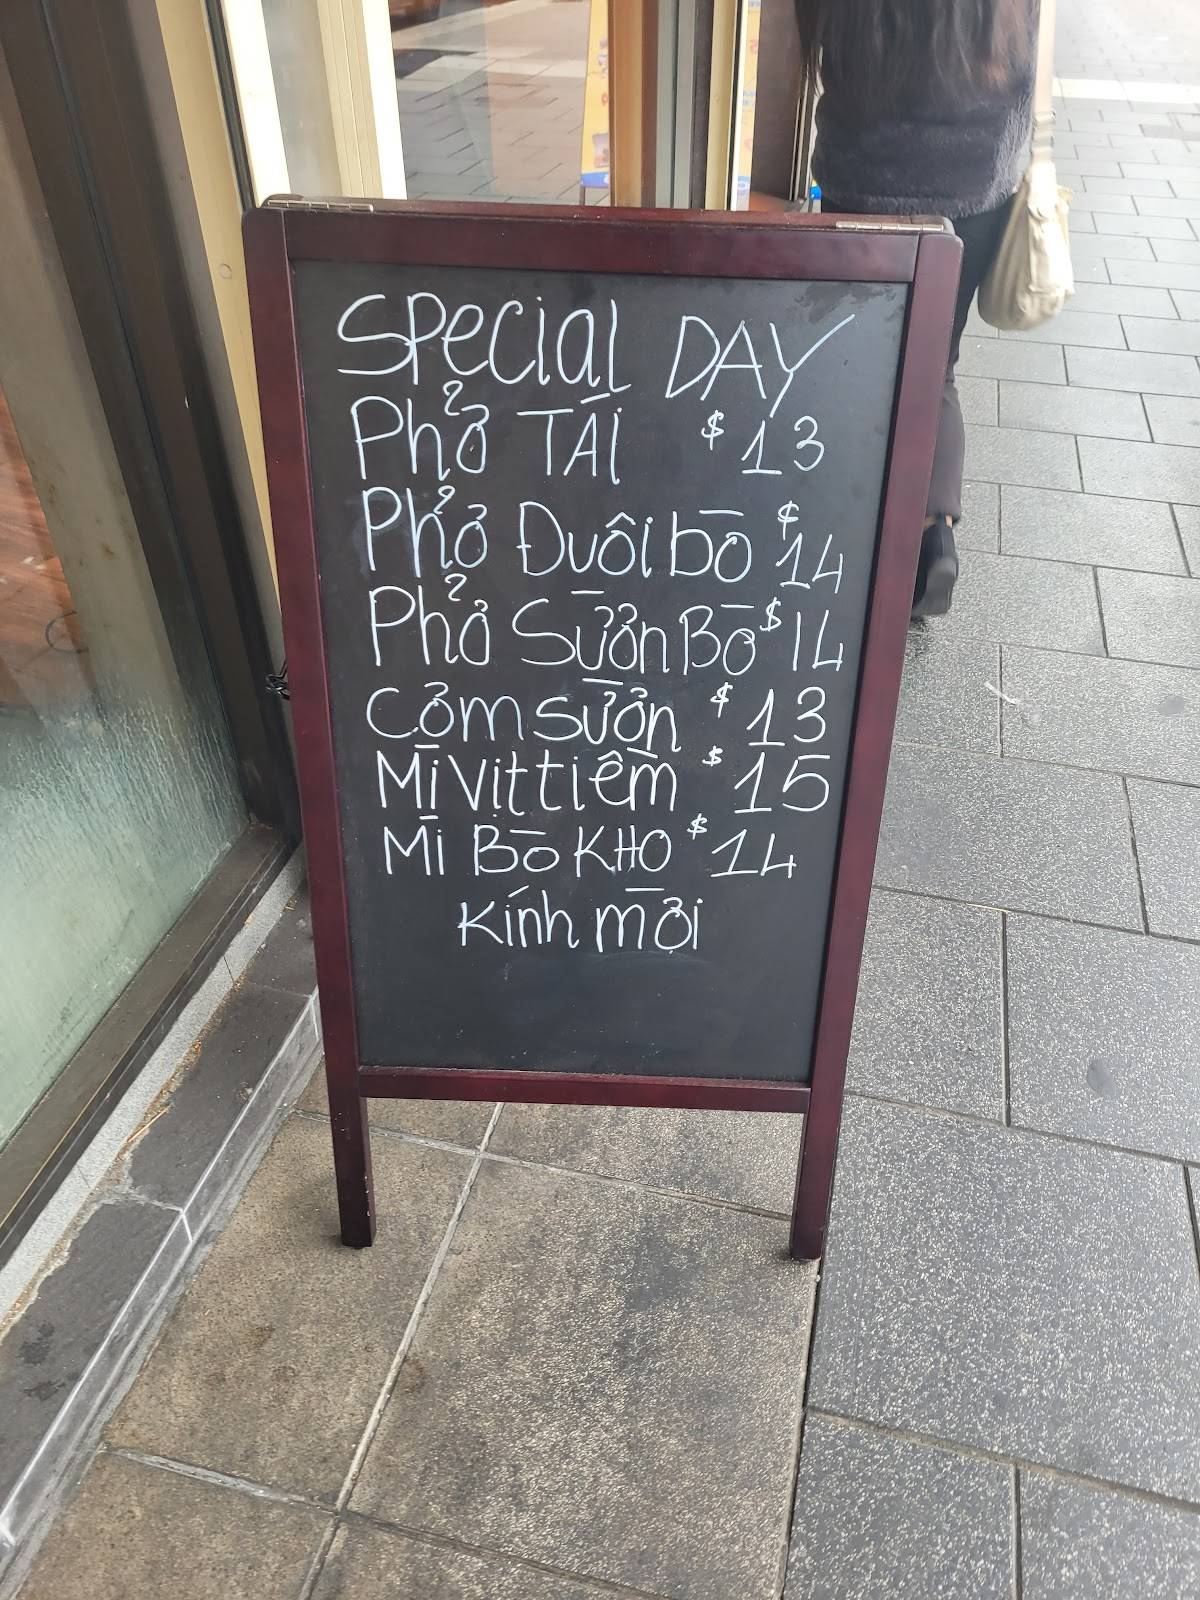 Special DAY
Phở TÁi $13
Phở Đuôi bò $14
Phở Sườn Bò $14
Cơm sườn $13
Mì Vịt tiềm $15
Mì Bò KHO $14
Kính mời